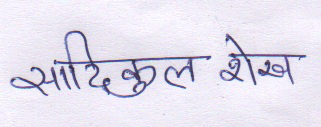 सादिकुल शेख